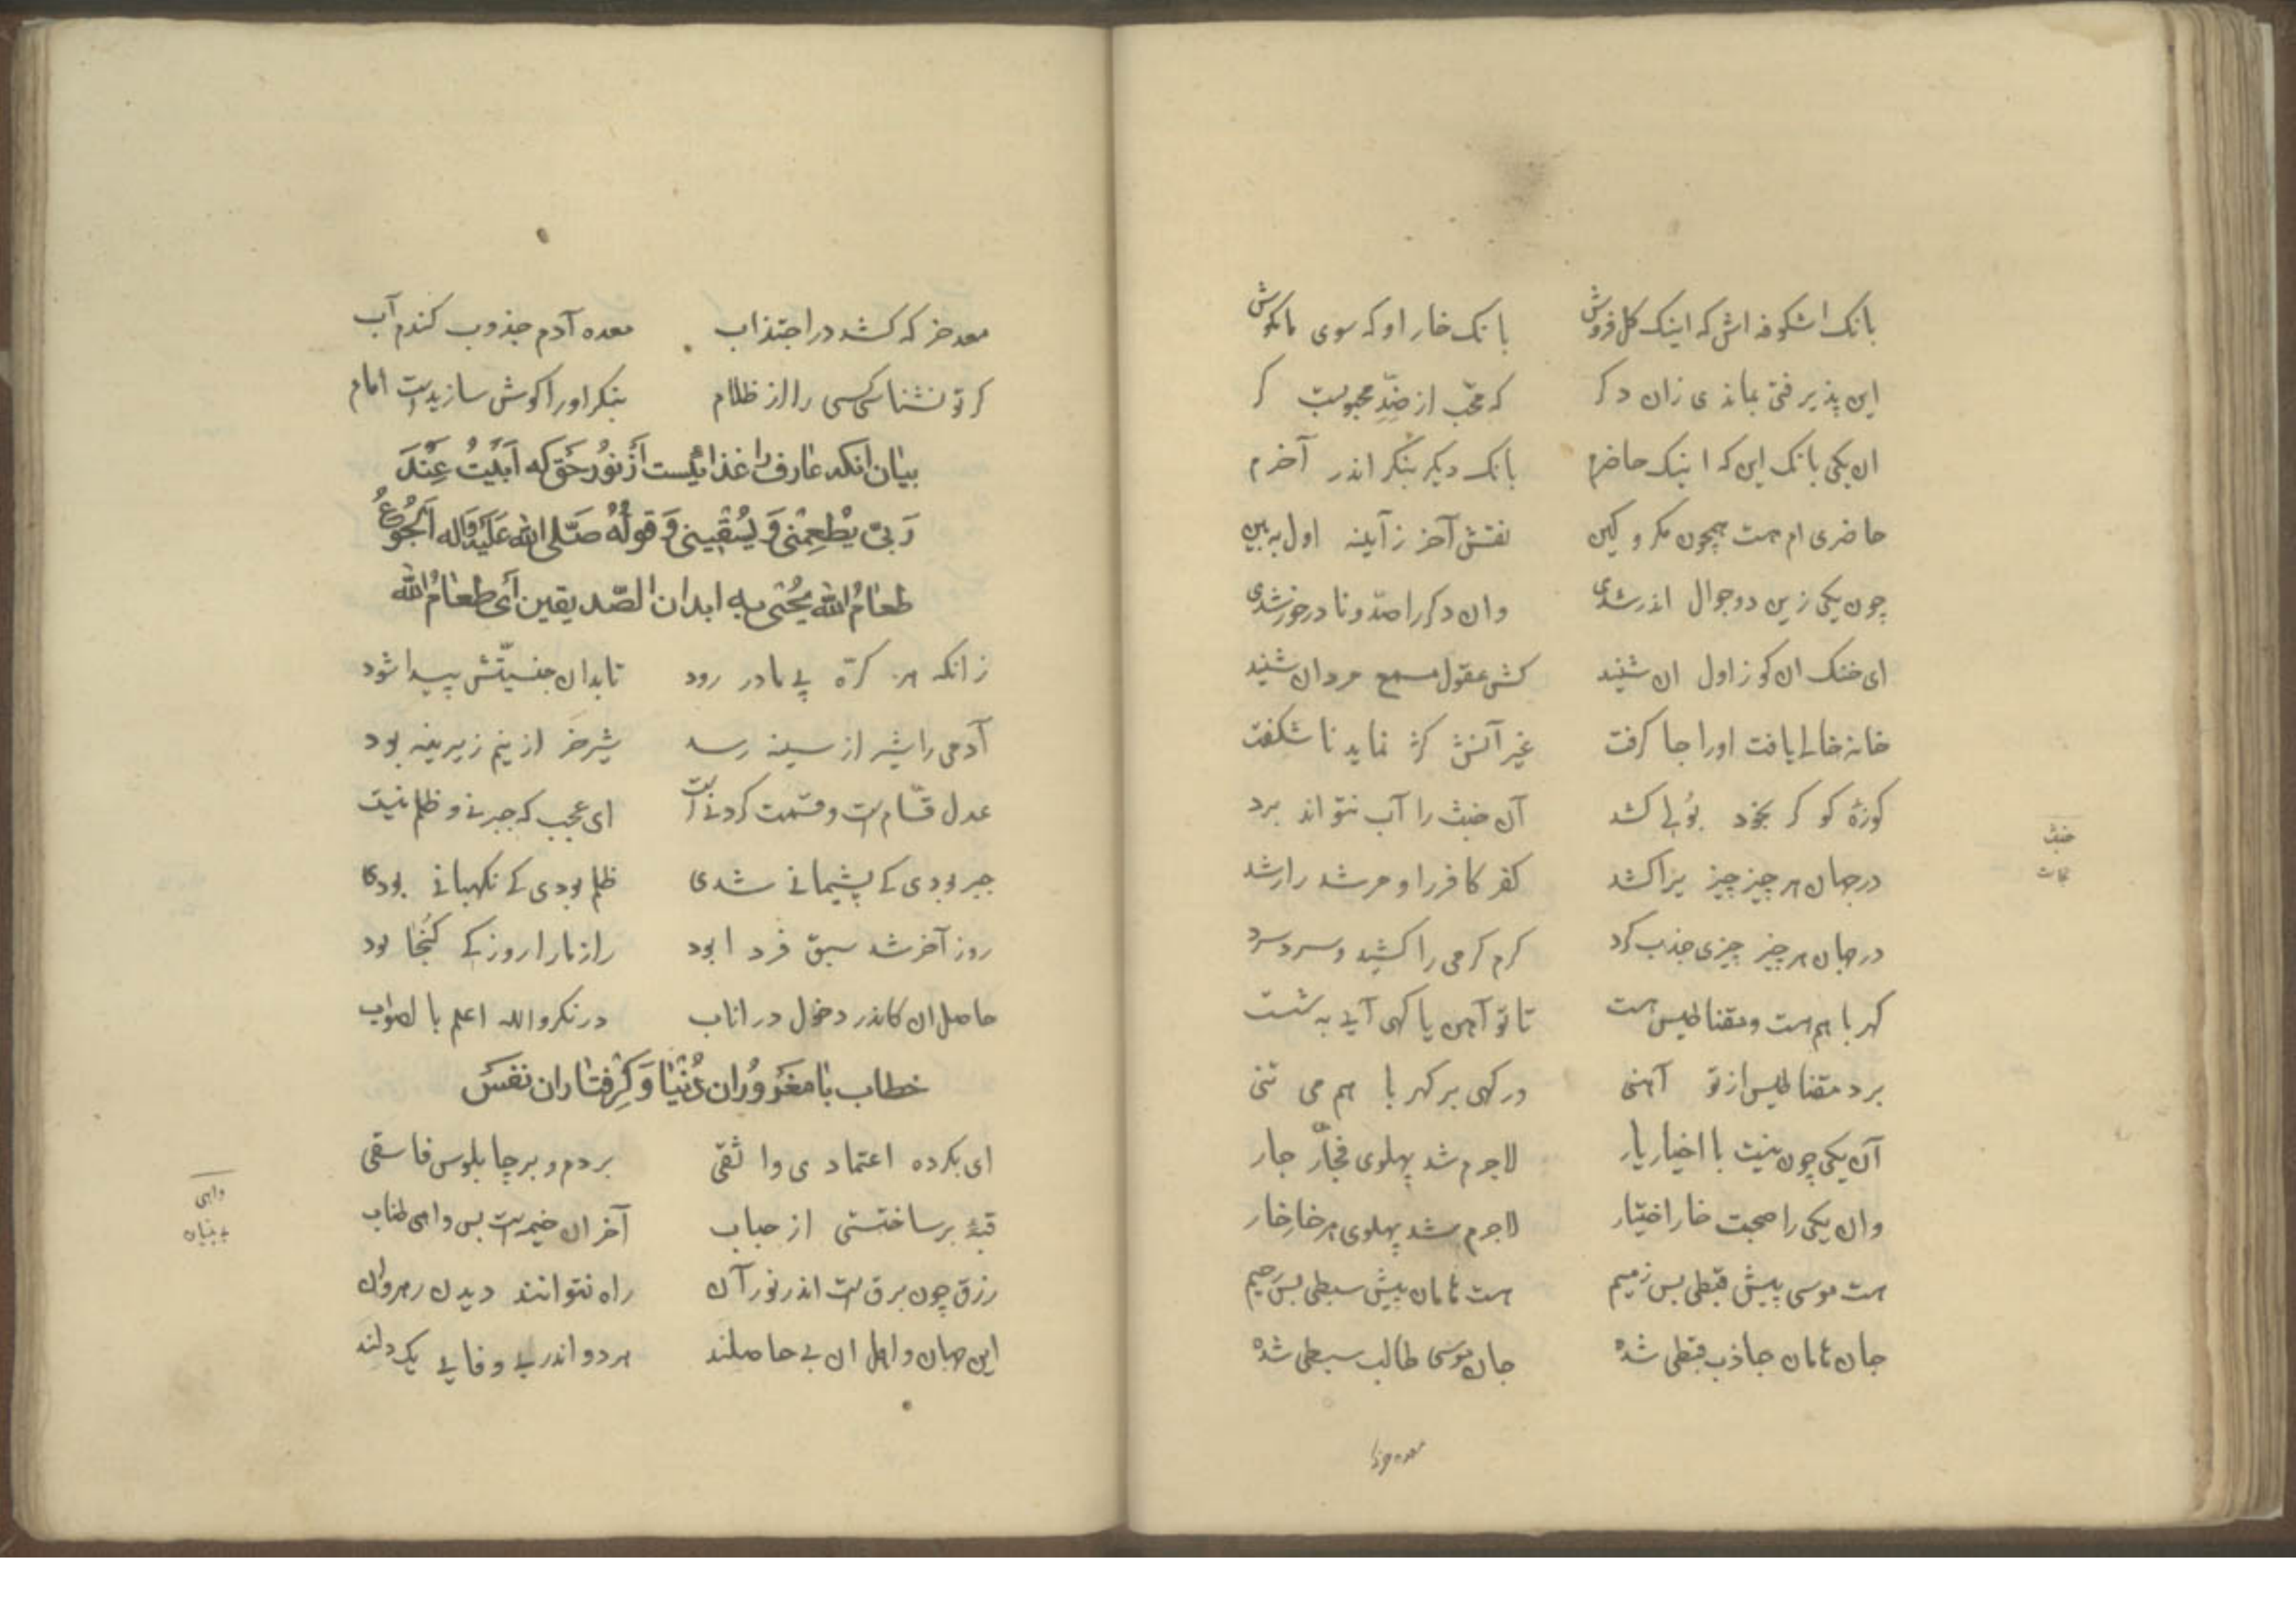 بانک اشکوفه اش که اینک کل فروش بانک خار او که سوی ما مکوش
این پذیرفتی بماندی زان دکر که محب از ضدّ محبوبست کر
ان یکی بانک این که اینک حاضرم بانک دیکر بنکر اندر آخرم
حاضری ام هست همچون مکر و کین نقش آخر ز آینه اول ببین
چون یکی زین دو جوال اندر شدی وان دکر را ضدّ و نا درخور شدی
ای خنک ان کو ز اول ان شنید کش عقول مسمع مردان شنید
خانه خالی یافت او را جا کرفت غیر آنش کژ نماید نا شکفت
کوزهٔ کو کر بخود بولی کشد آن خبث را آب نتواند برد
در جهان هر چیز چیزیرا کشد کفر کافر را و مرشد را رشد
در جهان هر چیز چیزی جذب کرد کرم کرمی را کشید و سرد سرد
کهربا هم هست و مقناطیس هست تا تو آهن یا کهی آیی به شست
برد مقناطیس از تو آهنی ور کهی بر کهربا هم می تنی
آن یکی چون نیست با اخیار یار لاجرم شد پهلوی فجّار جار
وان یکی را صحبت خار اختیار لاجرم شد پهلوی هر خار خار
هست موسی پیش قبطی بس ذمیم هست هامان پیش سبطی بس رجیم
جان هامان جاذب قبطی شده جان موسی طالب سبطی شده
خبث
معده خر که
معد خر که کشد در اجتذاب معده آدم جذوب کندم آب
کر تو نشناسی کسی را از ظلام بنکر او را کوش سازیدست امام
بیان انکه عارف را غذائیست از نور حق که ابیت عند
ربی یطعمنی و یسقینی و قوله صلی الله علیه واله الجوع
طعام الله یحیی به ابدان الصدیقین ای طعام الله
زانکه هر کرّه پی مادر رود تا بدان جنسیّتش پیدا شود
آدمی را شیر از سینه رسد شیر خر از نیم زیرینه بود
عدل قسّام است و قسمت کردنی است ای عجب که جبر نی و ظلم نیست
جبر بودی کی پشیمانی شدی ظلم بودی کی نکهبانی بودی
روز آخر شد سبق فردا بود راز ما را روز کی کُنجا بود
حاصل ان کاندر دخول در اناب در نکر والله اعلم بالصواب
خطاب با مغروران دنیا و کرفتاران نفس
ای بکرده اعتمادی واثقی بر دم و بر چاپلوس فاسقی
قبهٔ بر ساختستی از حباب آخر ان خیمه است بس واهی طناب
رزق چون برق است اندر نور آن راه نتوانند دیدن رهروان
این جهان و اهل ان بی حاصلند هر دو اندر بی وفایی یک دلند
واهی
بی بنیان